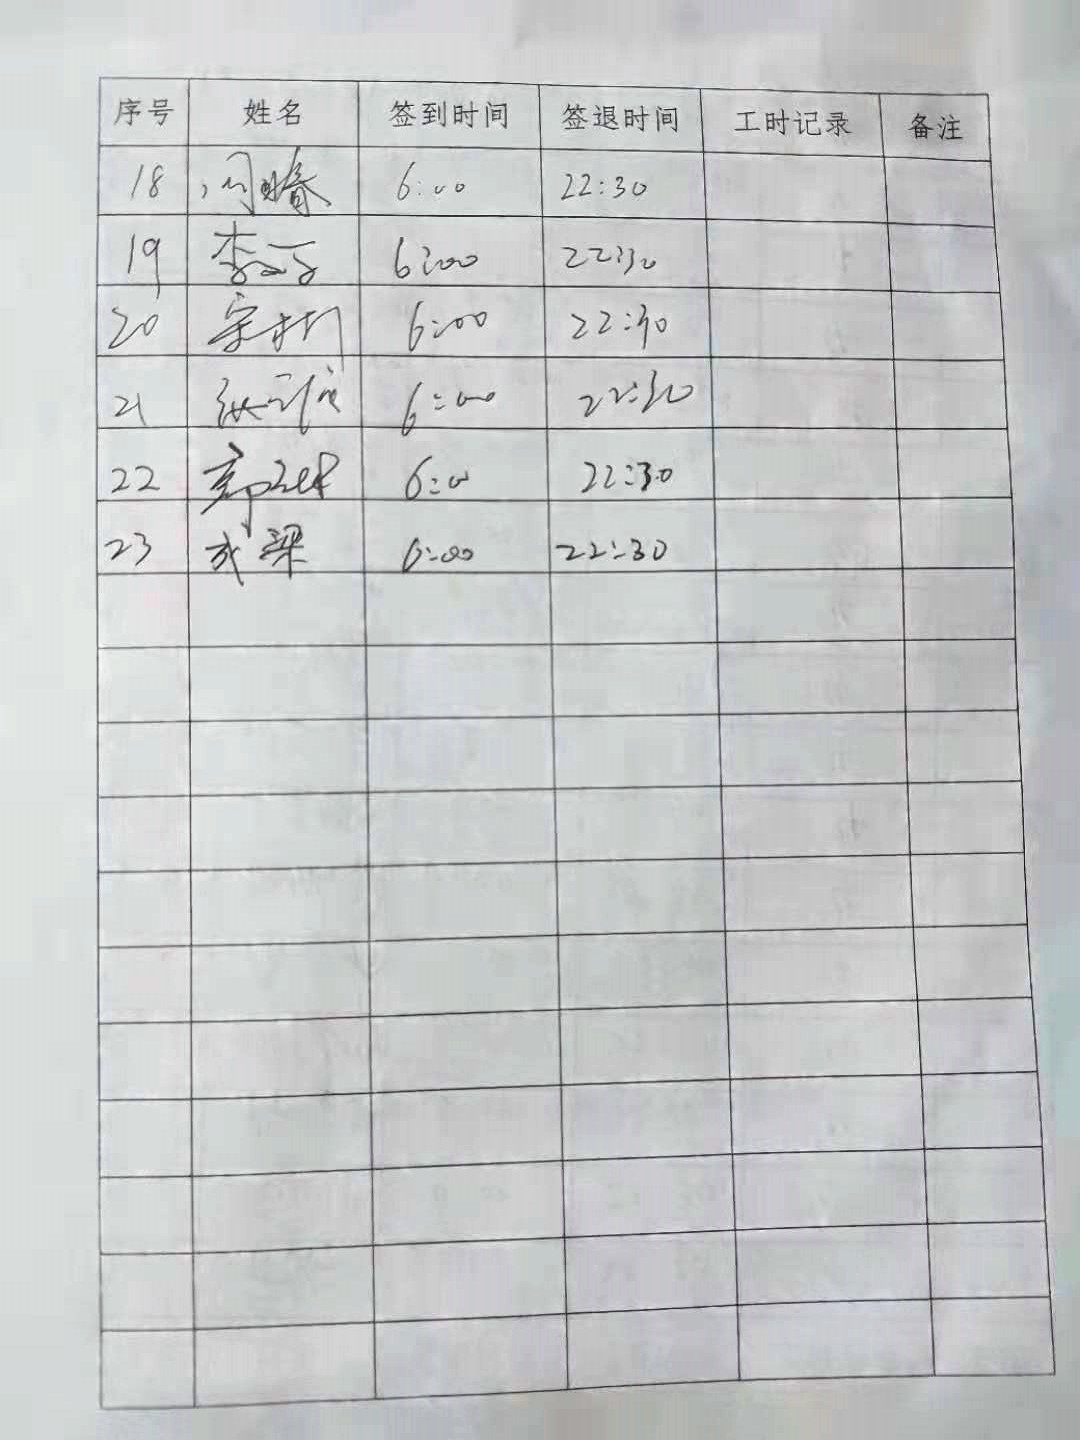 序号 姓名 签到时间 签退时间 工时记录 备注
18 6:00 22:30
19 李 6:00 22:30
20 6:00 22:30
21 张 6:00 22:30
22 郭 6:00 22:30
23 成梁 6:00 22:30